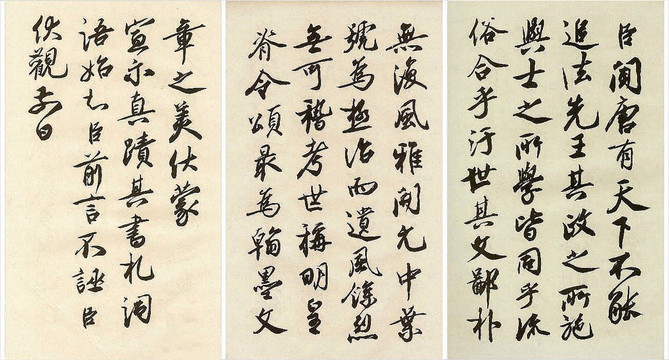 臣聞唐有天下不能
追法先王其政之所施
與士之所學皆同乎流
俗合乎汙世其文鄙朴
無復風雅開元中業
號為極治而遺風餘烈
無可稽考世稱明皇
脊令頌最為翰墨文
章之美伏蒙
宣示真蹟其書札詞
語始知臣前言不誣臣
伏觀前日